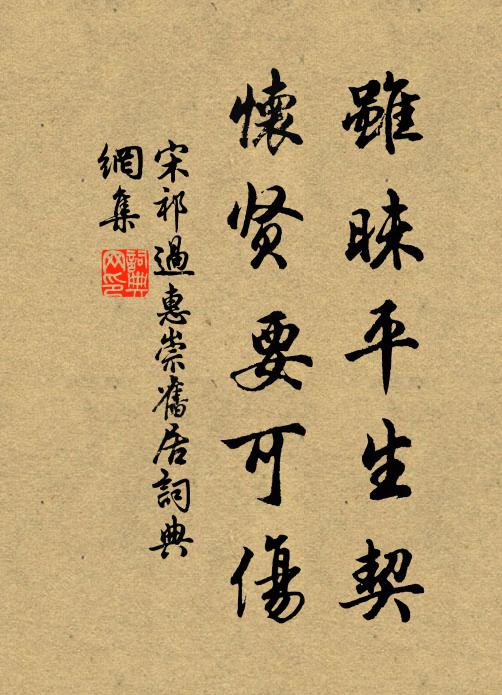 雖昧平生契
懷贤要可傷
宋祁過惠崇舊居詞典
網集
詞典
网印